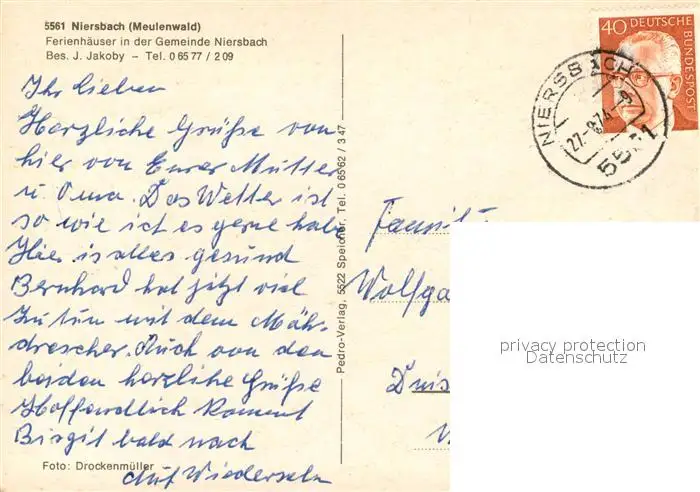 5561 Niersbach (Meulenwald)
Ferienhäuser in der Gemeinde Niersbach
Bes. J. Jakoby – Tel. 0 65 77 / 2 09
Ihr Lieben
Herzliche Grüße von
hier von Eurer Mutter
u. Oma. Das Wetter ist
so wie ich es gerne habe
Hier is alles gesund
Bernhard hat jetzt viel
zu tun mit dem Mäh-
drescher. Auch von den
beiden herzlihe Grüße
Hoffendlich kommt
Birgit bald nach
Auf Wiedersehn
Foto: Drockenmüller
Pedro-Verlag, 5522 Speicher, Tel. 0 65 62 / 3 47
40 DEUTSCHE
BUNDESPOST
NIERSBACH
27.-8.74
5561
Familie
Wolfga
Duis
privacy protection
Datenschutz